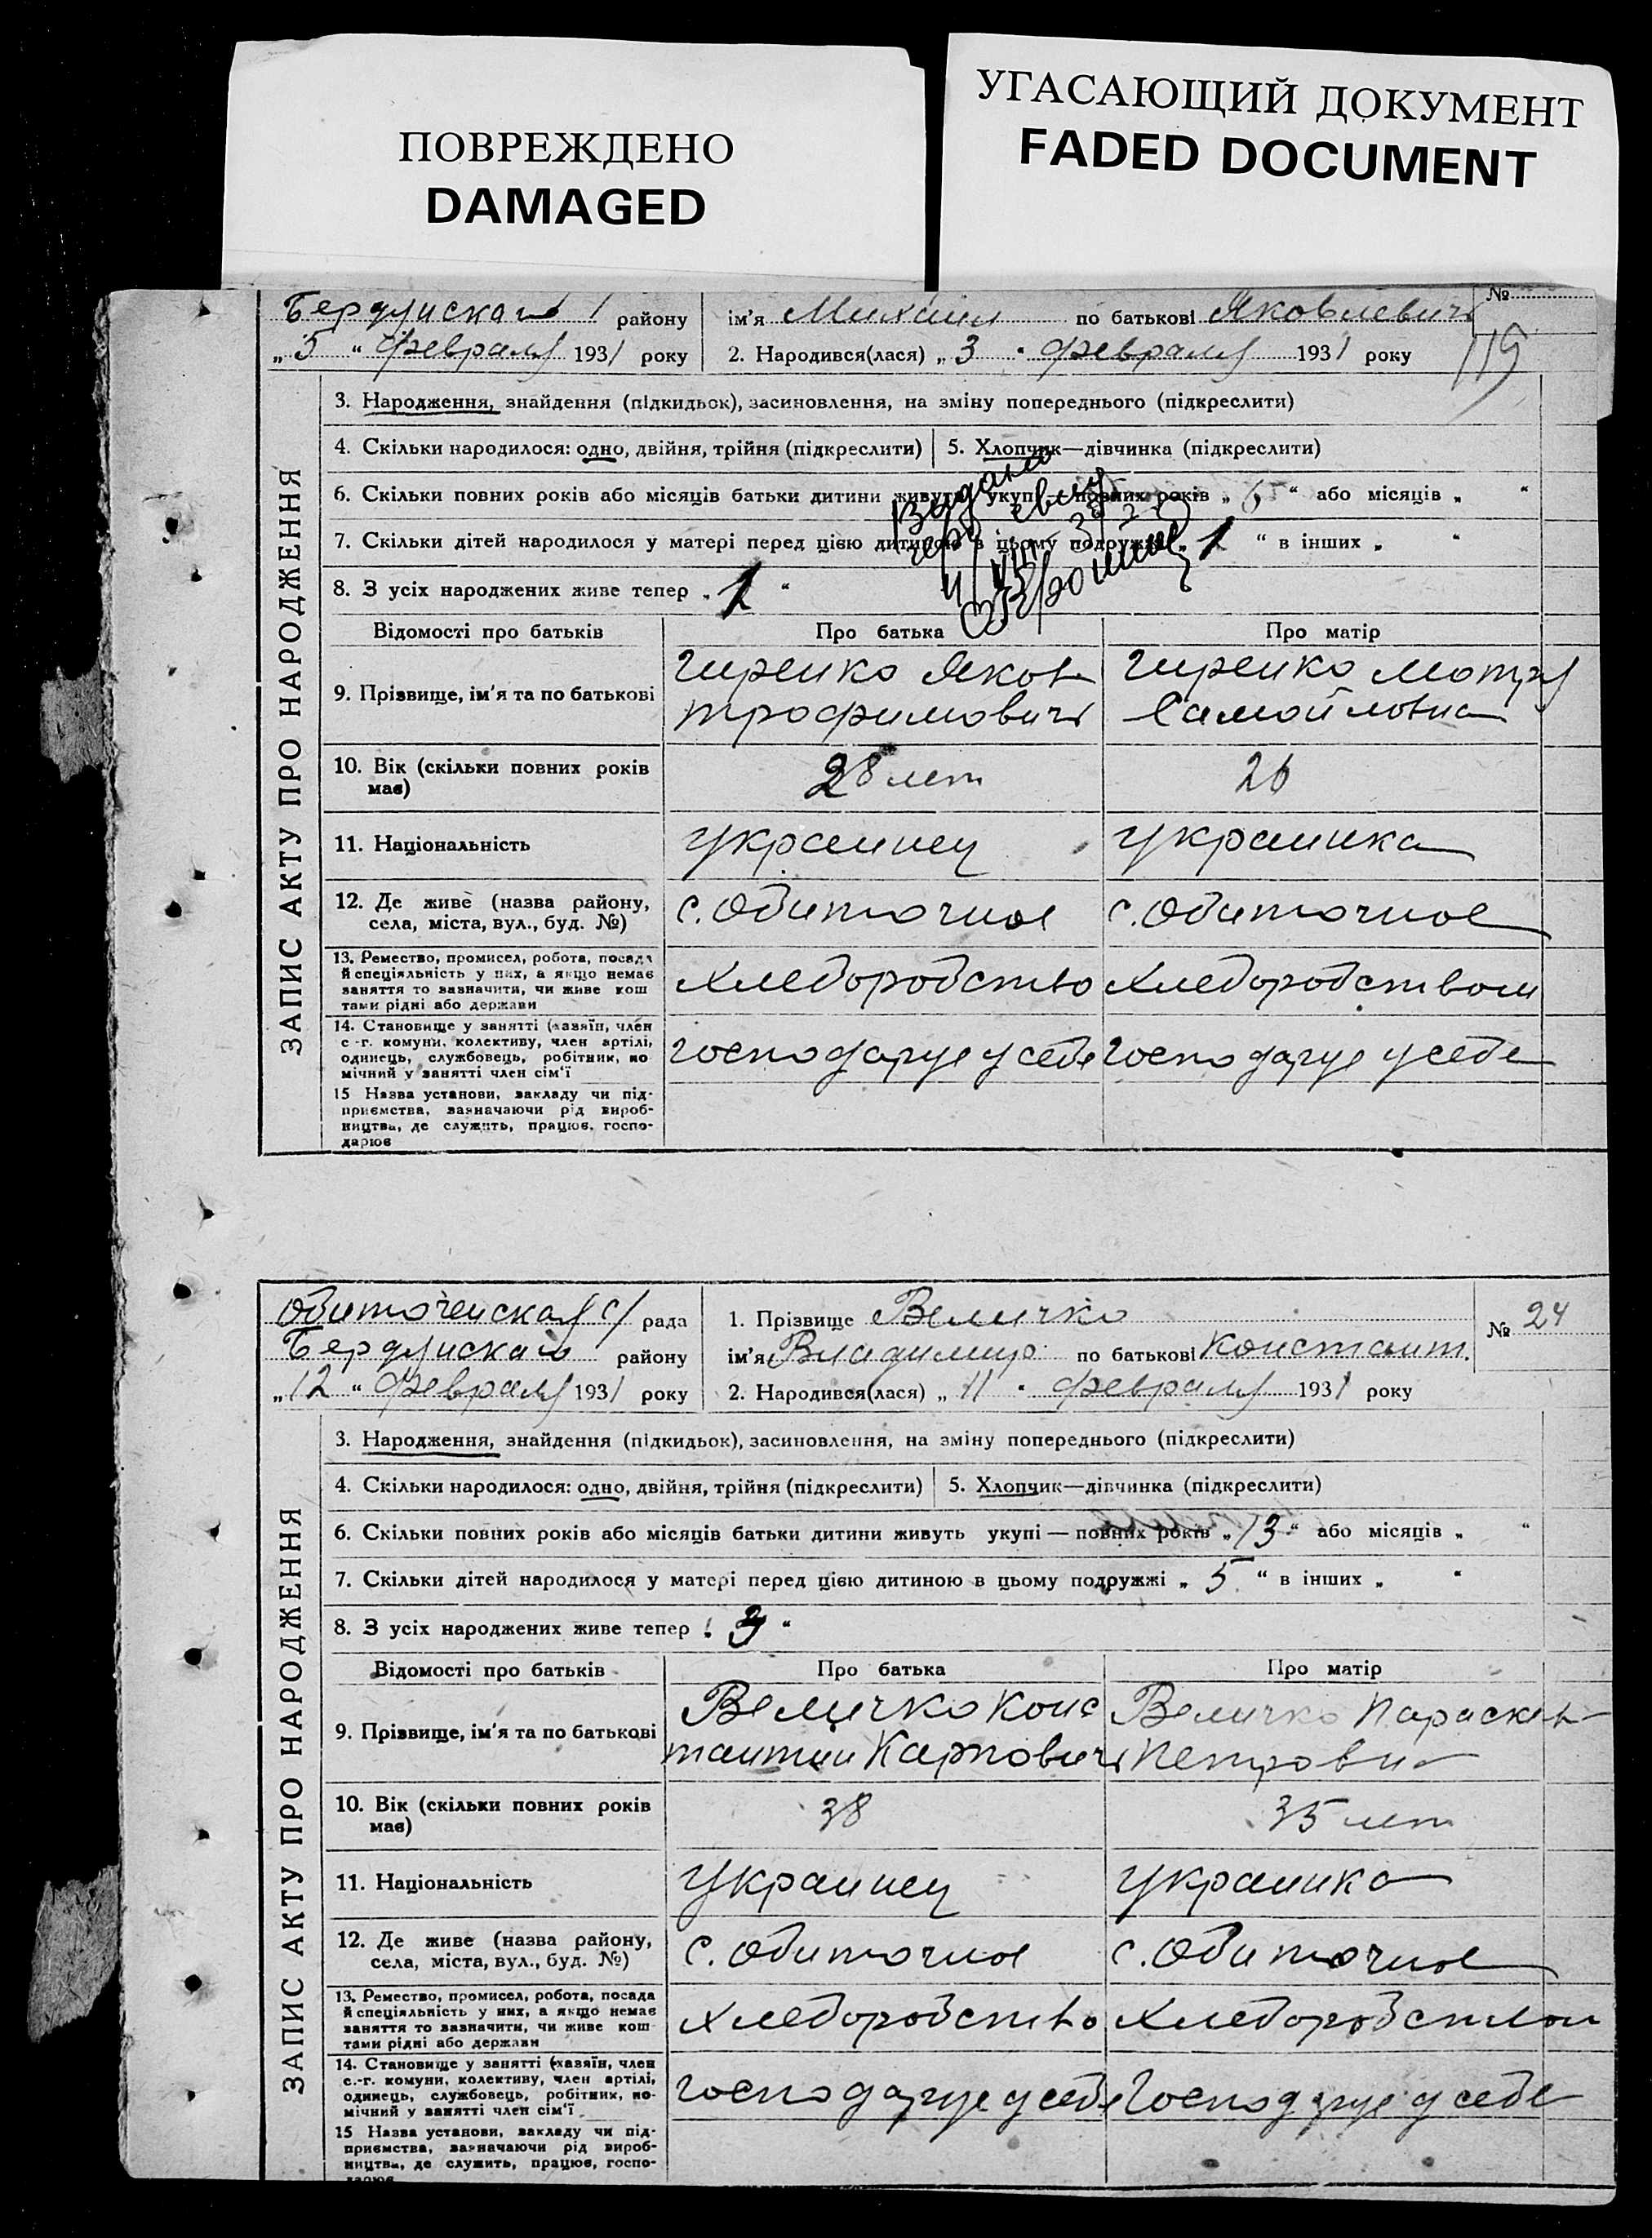 ПОВРЕЖДЕНО
DAMAGED
УГАСАЮЩИЙ ДОКУМЕНТ
FADED DOCUMENT
району ім'я Михаил по батькові Яковлевич №
„ 5 “ февраля 1931 року 2. Народився(лася) „ 3 “ февраля 1931 року
119
ЗАПИС АКТУ ПРО НАРОДЖЕННЯ
3. Народження, знайдення (підкидьок), засиновлення, на зміну попереднього (підкреслити)
4. Скільки народилося: одно, двійня, трійня (підкреслити) 5. Хлопчик—дівчинка (підкреслити)
6. Скільки повних років або місяців батьки дитини живуть укупі — повних років „ “ або місяців „ “
7. Скільки дітей народилося у матері перед цією дитиною в цьому подружжі „ 1 “ в інших „ “
8. З усіх народжених живе тепер „ 1 “
Відомості про батьків Про батька Про матір
9. Прізвище, ім'я та по батькові
Яков
трофимович
Самойловна
10. Вік (скільки повних років має) 28 лет 26
11. Національність украинец украинка
12. Де живе (назва району, села, міста, вул., буд. №) с. Обиточное с. Обиточное
13. Ремество, промисел, робота, посада й спеціяльність у них, а якщо немає заняття то зазначити, чи живе коштами рідні або держави хлеборобство хлеборобством
14. Становище у занятті (хазяїн, член с.-г. комуни, колективу, член артілі, одинець, службовець, робітник, помічний у занятті член сім'ї господарує у себе господарує у себе
15 Назва установи, закладу чи підприємства, зазначаючи рід виробництва, де служить, працює, господарює
рада 1. Прізвище Величко № 24
району ім'я Владимир по батькові Констант.
„ 12 “ февраля 1931 року 2. Народився(лася) „ 11 “ февраля 1931 року
ЗАПИС АКТУ ПРО НАРОДЖЕННЯ
3. Народження, знайдення (підкидьок), засиновлення, на зміну попереднього (підкреслити)
4. Скільки народилося: одно, двійня, трійня (підкреслити) 5. Хлопчик—дівчинка (підкреслити)
6. Скільки повних років або місяців батьки дитини живуть укупі — повних років „ 13 “ або місяців „ “
7. Скільки дітей народилося у матері перед цією дитиною в цьому подружжі „ 5 “ в інших „ “
8. З усіх народжених живе тепер „ 3 “
Відомості про батьків Про батька Про матір
9. Прізвище, ім'я та по батькові
Величко Конс
тантин Карпович
Величко Парасков
Петровн
10. Вік (скільки повних років має) 38 35 лет
11. Національність украинец украинка
12. Де живе (назва району, села, міста, вул., буд. №) с. Обиточное с. Обиточное
13. Ремество, промисел, робота, посада й спеціяльність у них, а якщо немає заняття то зазначити, чи живе коштами рідні або держави хлеборобство хлеборобством
14. Становище у занятті (хазяїн, член с.-г. комуни, колективу, член артілі, одинець, службовець, робітник, помічний у занятті член сім'ї господарує у себе господарує у себе
15 Назва установи, закладу чи підприємства, зазначаючи рід виробництва, де служить, працює, господарює